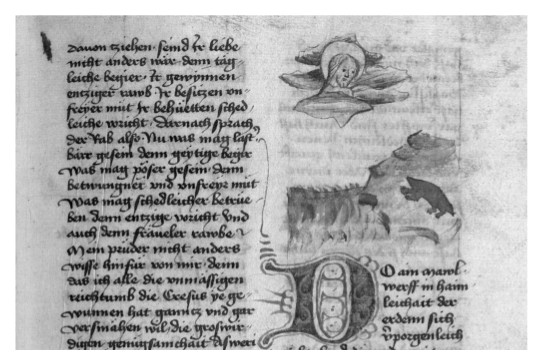 dauon tziehen seind Ir liebe
nicht anders wär denn täg
leiche begier Ir gewynnen
entziger rawb Ir besitzen vn
freyer mut Ir behüetten sched
leiche voricht Darnach sprach
der Rab also Nu was mag last
bärr gesein denn geytige begir
Was mag poser gesein denn
betwungner vnd vnfreyr mut
Was mag schedleicher betrüe
ben denn entzige voricht Vnd
auch denn fräueler rawbe
Mein prüder nicht anders
wisse hinfür von mir denn
das ich alle die vnmässigen
reichtumb die Cresus ye ge
wunnen hat ganntz vnd gar
versmähen wil die groswir
digen genügsamchait
D
O ain mawl
werff in haim
leichait der
erdenn sich
verporgenleich